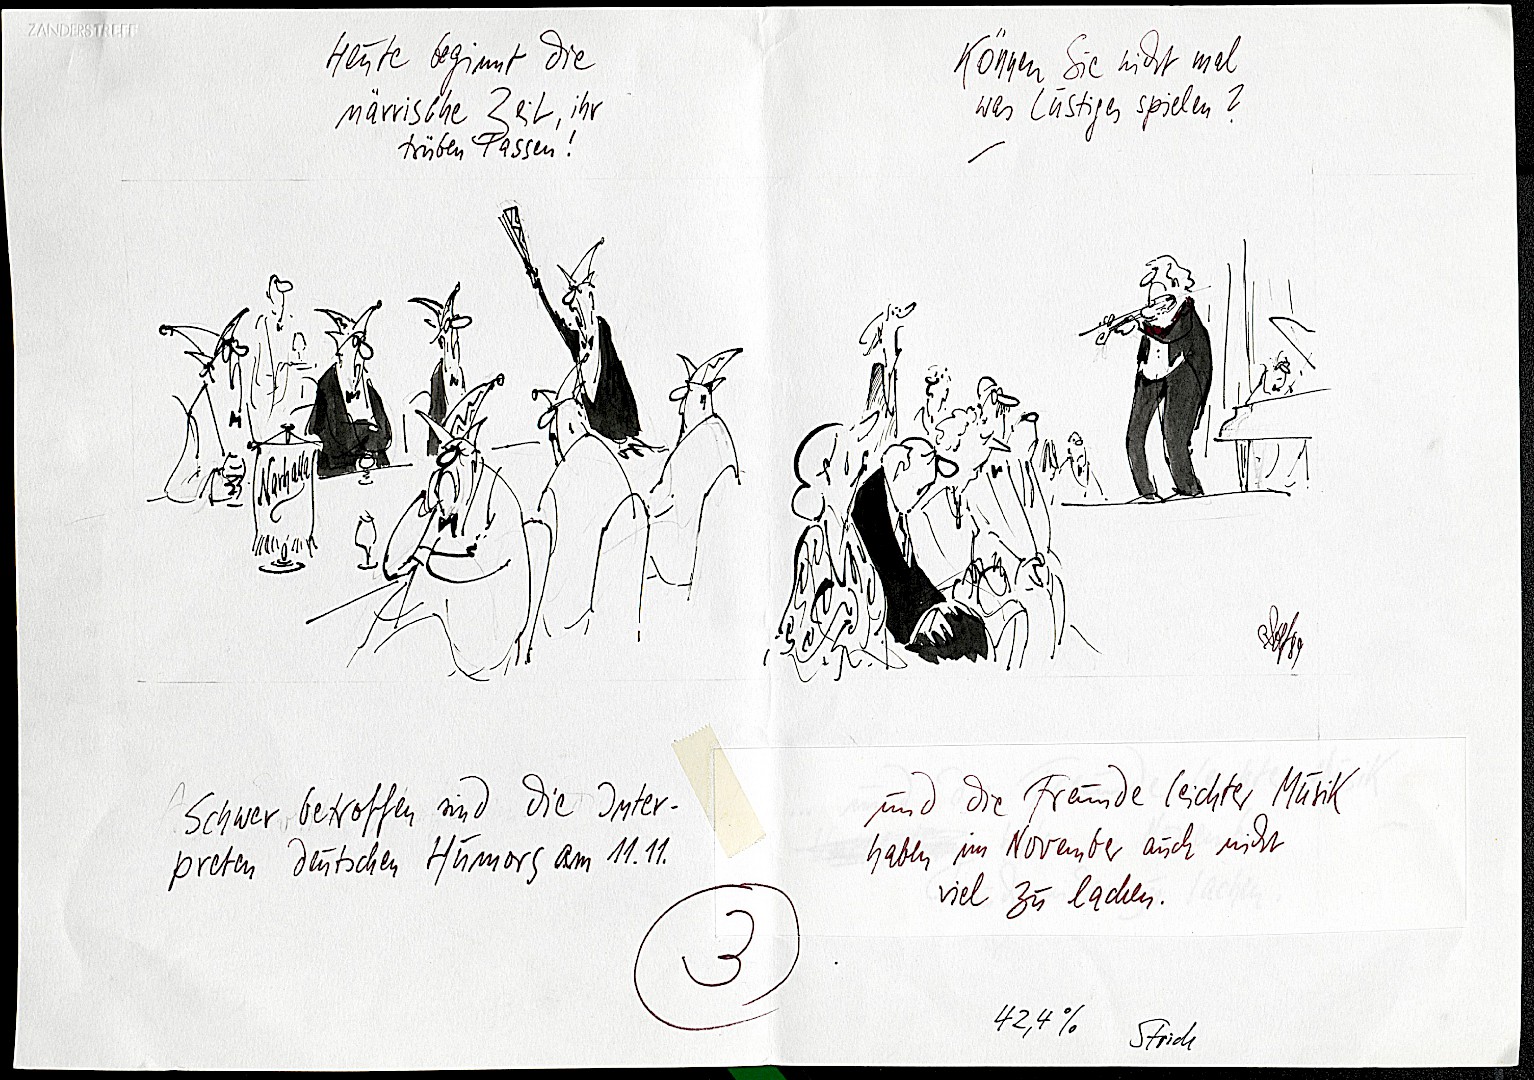 ZANDERSTREFF
Heute beginnt die
närrische Zeit, ihr
trüben Tassen!
Können Sie nicht mal
was Lustiges spielen?
Narhalla
Schwer betroffen sind die Inter-
preten deutschen Humors am 11.11.
und die Freunde leichter Musik
haben im November auch nicht
viel zu lachen.
3
42,4%
Strich